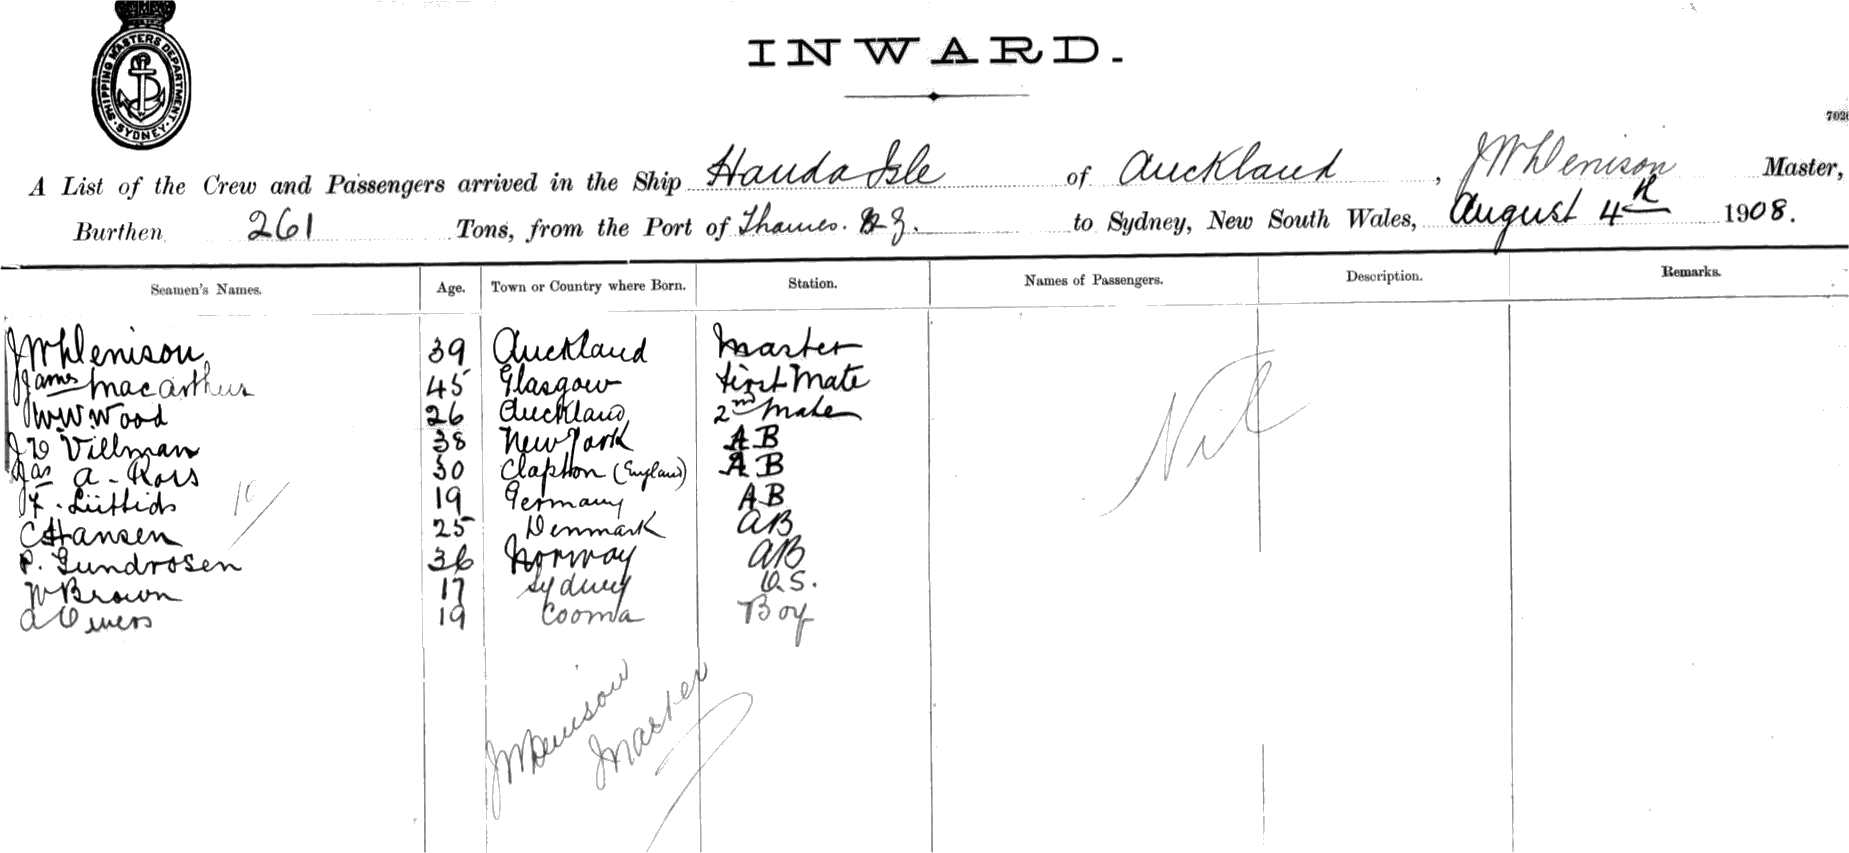 SHIPPING MASTERS DEPARTMENT
SYDNEY
INWARD.
A List of the Crew and Passengers arrived in the Ship Handa Isle of Auckland, J W Denison Master,
Burthen 261 Tons, from the Port of Thames. N Z. to Sydney, New South Wales, August 4th 1908.
Seamen's Names. Age. Town or Country where Born. Station. Names of Passengers. Description. Remarks.
J W Denison 39 Auckland Master
James Macarthur 45 Glasgow First Mate
W. W. Wood 26 Auckland 2nd Mate
Villman 38 New York A B
Jas A. Ross 30 Clapton (England) A B
19 Germany A B
C Hansen 25 Denmark A B
P. Gundrosen 36 Norway A B
W Brown 17 Sydney O.S.
A Owens 19 Cooma Boy
Nil
10
J W Denison
Master